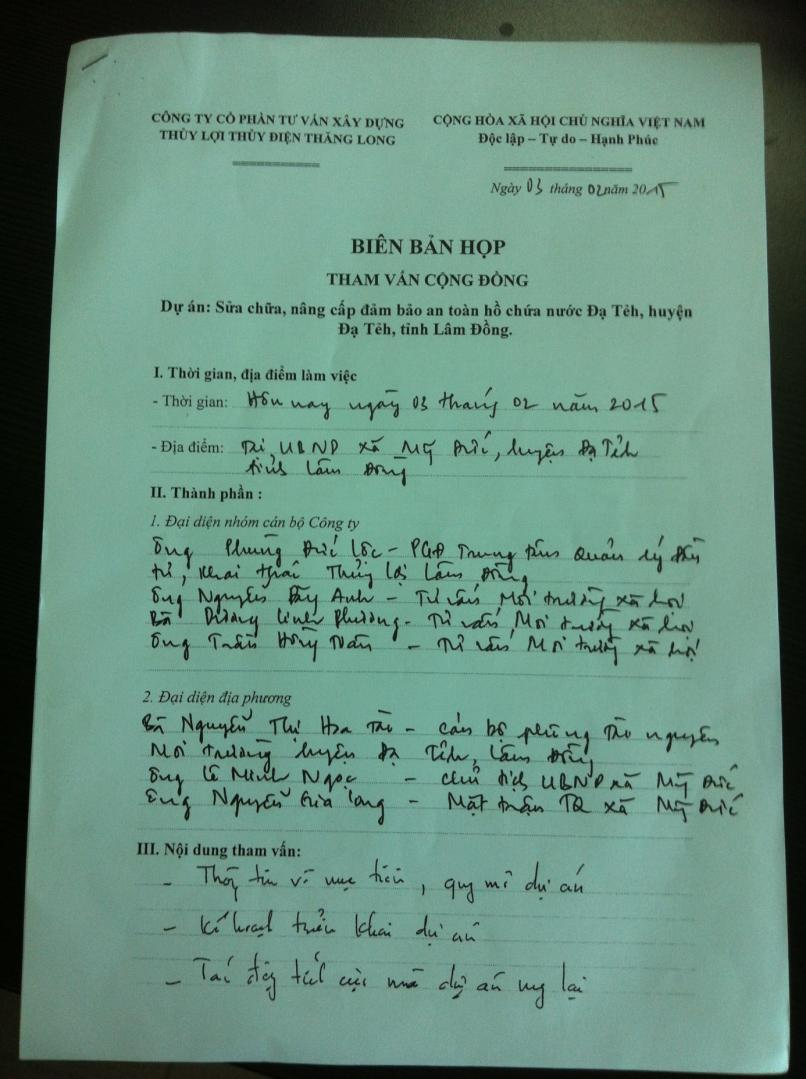 CÔNG TY CỔ PHẦN TƯ VẤN XÂY DỰNG
THỦY LỢI THỦY ĐIỆN THĂNG LONG
CỘNG HÒA XÃ HỘI CHỦ NGHĨA VIỆT NAM
Độc lập – Tự do – Hạnh Phúc
Ngày 03 tháng 02 năm 2015
BIÊN BẢN HỌP
THAM VẤN CỘNG ĐỒNG
Dự án: Sửa chữa, nâng cấp đảm bảo an toàn hồ chứa nước Đạ Tẻh, huyện
Đạ Tẻh, tỉnh Lâm Đồng.
I. Thời gian, địa điểm làm việc
- Thời gian: Hôm nay ngày 03 tháng 02 năm 2015
- Địa điểm: Tại UBND xã Mỹ Đức, huyện Đạ Tẻh
tỉnh Lâm Đồng
II. Thành phần :
1. Đại diện nhóm cán bộ Công ty
Ông Phùng Đức Lộc – PGĐ Trung tâm Quản lý Đầu
tư, khai thác Thủy lợi Lâm Đồng
Ông Nguyễn Anh – Tư vấn Môi trường xã hội
Bà Dương Linh Phương - Tư vấn Môi trường xã hội
Ông Trần Hồng – Tư vấn Môi trường xã hội
2. Đại diện địa phương
Bà Nguyễn Thị Hoa – cán bộ phòng Tài nguyên
Môi trường huyện Đạ Tẻh, Lâm Đồng
Ông Lê Minh Ngọc – Chủ tịch UBND xã Mỹ Đức
Ông Nguyễn Gia Long – Mặt trận TQ xã Mỹ Đức
III. Nội dung tham vấn:
- Thông tin về mục tiêu, quy mô dự án
- Kế hoạch triển khai dự án
- Tác động tích cực mà dự án mang lại